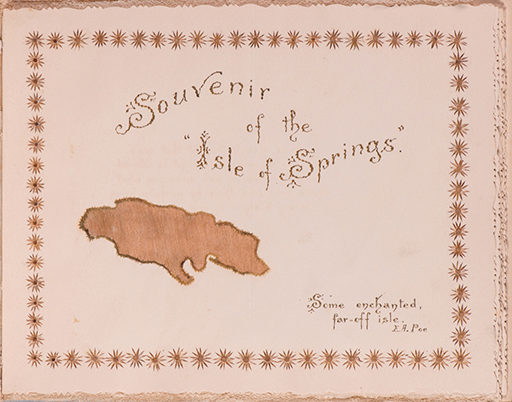 Souvenir
of the
"Isle of Springs."
Some enchanted,
far-off isle.
E.A. Poe